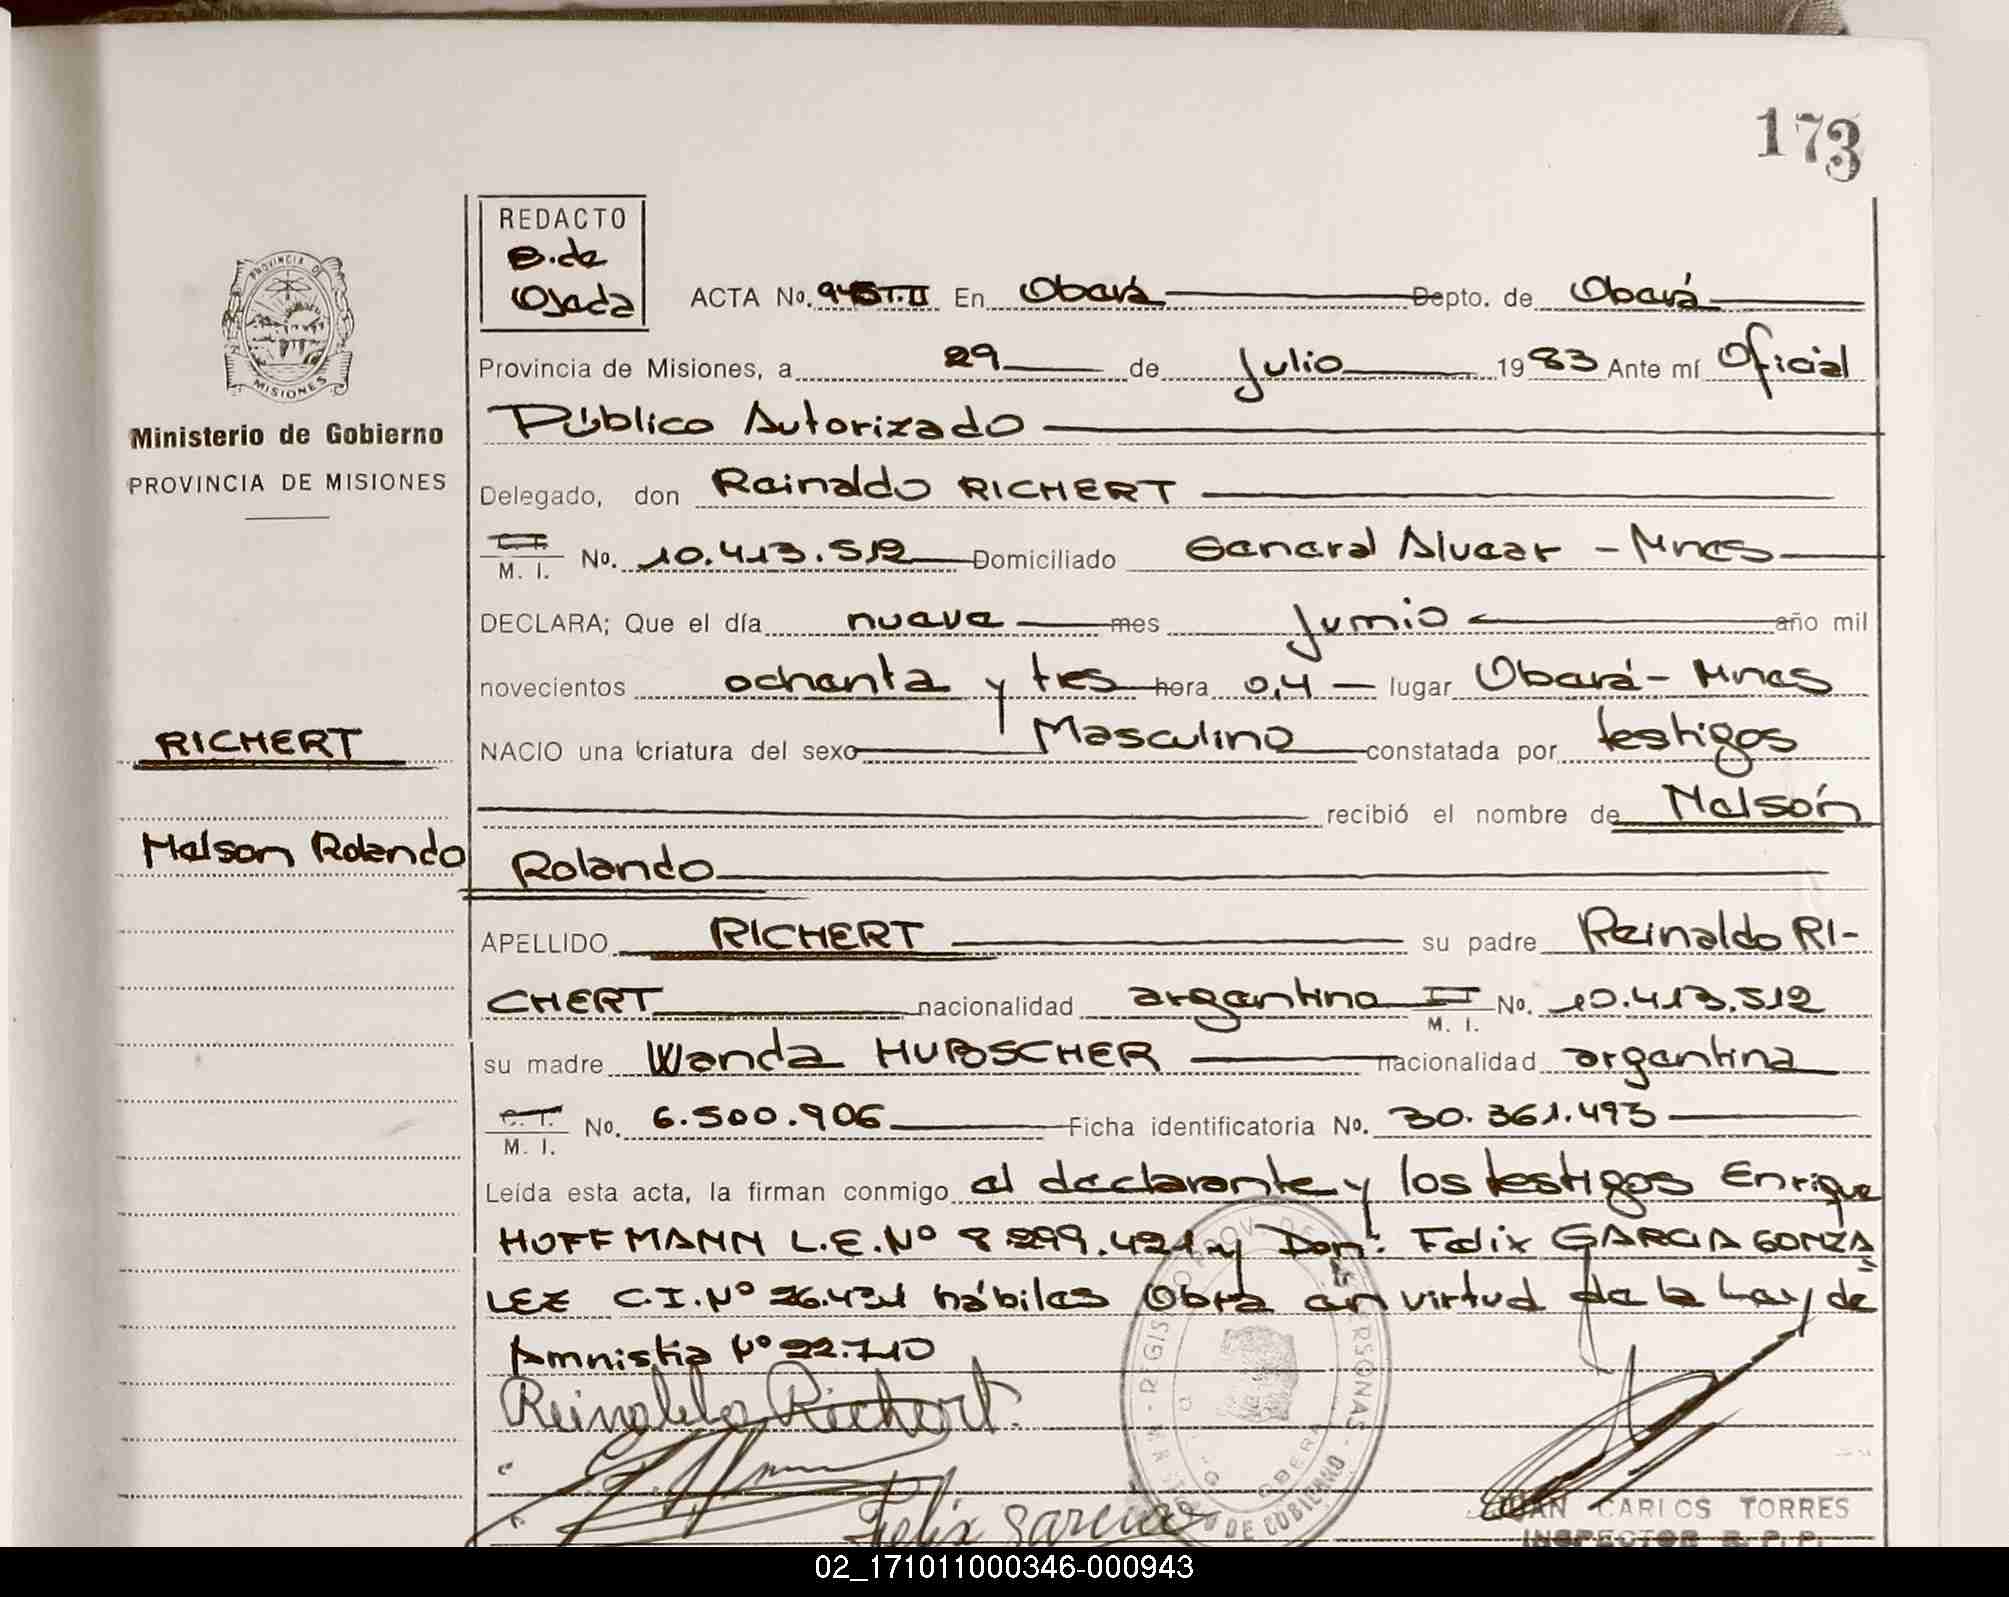 173
REDACTO
e.de
Ojeda
ACTA No. T.II En Oberá Depto. de Oberá
Provincia de Misiones, a 29 de Julio 1983 Ante mí Oficial
PROVINCIA DE
MISIONES
Público Autorizado
Ministerio de Gobierno
PROVINCIA DE MISIONES
Delegado, don Reinaldo RICHERT
M. I. No. 10.413.512 Domiciliado General Alvear - Mnes
DECLARA; Que el día nueve mes Junio año mil
novecientos ochenta y tres hora 0,4 lugar Oberá - Mnes
NACIO una criatura del sexo Masculino constatada por testigos
RICHERT
recibió el nombre de Nelsón
Nelson Rolando
Rolando
APELLIDO RICHERT su padre Reinaldo RI-
CHERT nacionalidad argentino M. I. No. 10.413.512
su madre Wanda HUBSCHER nacionalidad argentina
C. I. M. I. No. 6.500.906 Ficha identificatoria No. 30.361.493
Leída esta acta, la firman conmigo el declarante y los testigos Enrique
HOFFMANN L.E.Nº 8.299.421 y Don: Felix GARCIA GONZA
LEZ C.I.Nº 26.431 hábiles Obra en virtud de la Ley de
Amnistia Nº 22.710
Reinaldo Richert.
Felix Garcia
JUAN CARLOS TORRES
INSPECTOR R.P.P.
02_171011000346-000943